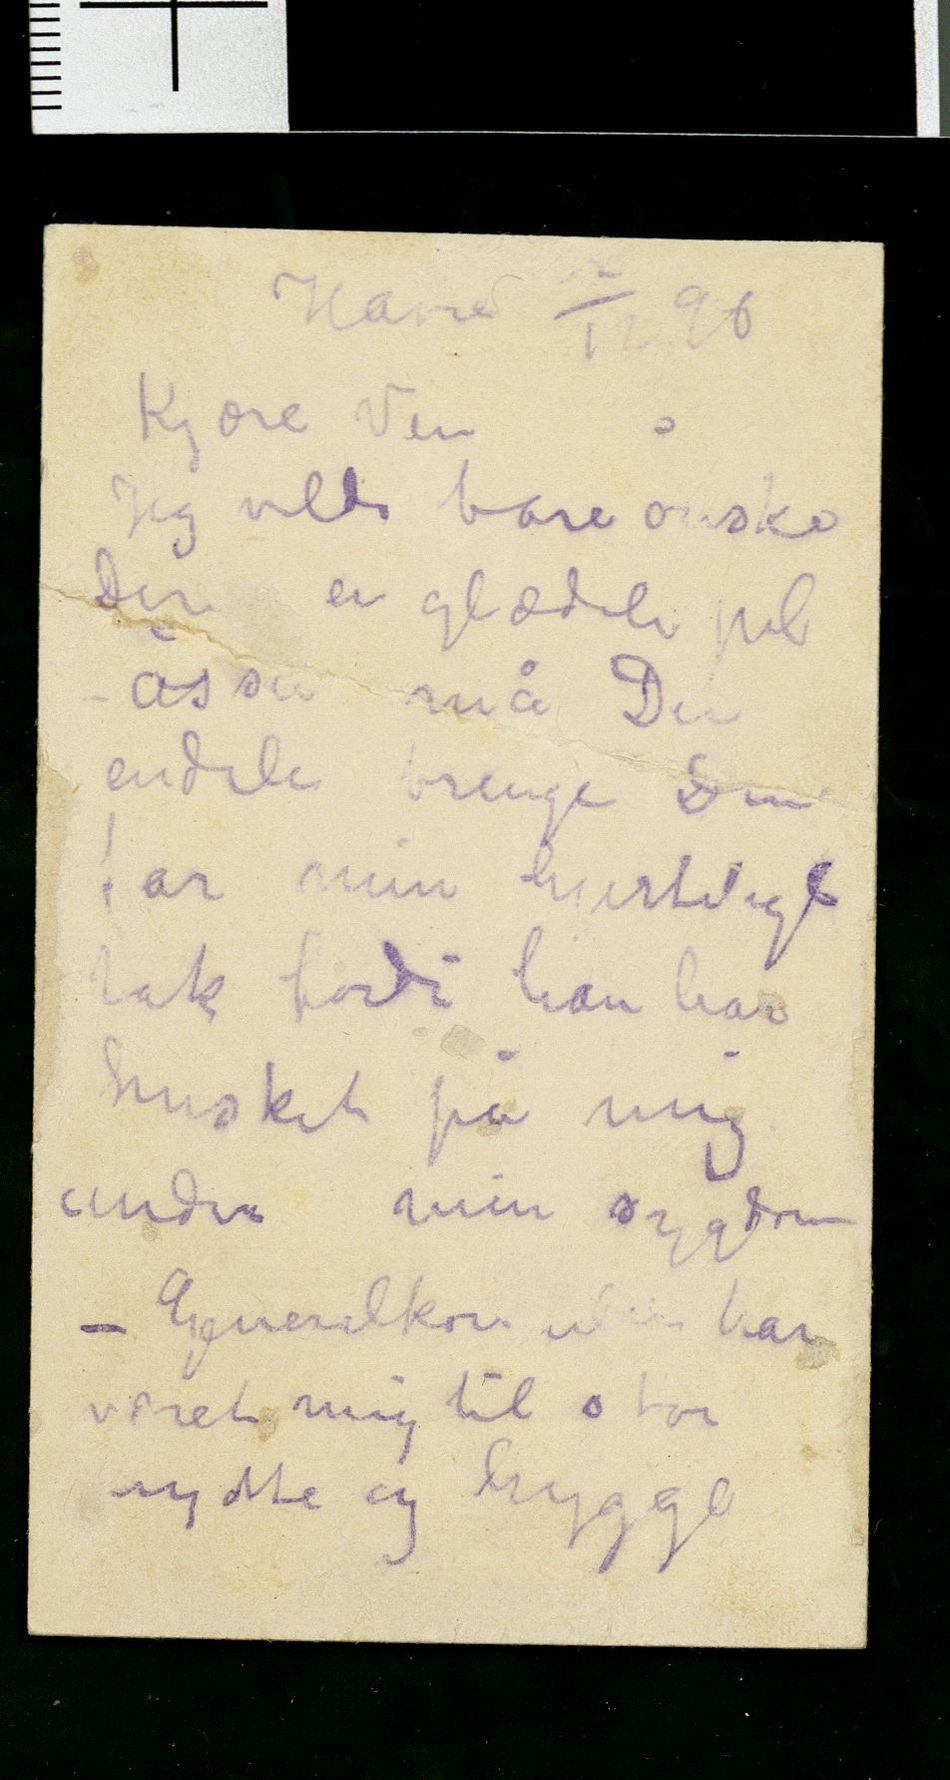 Havre 12 96
Kjære Ven
Jeg vilde bare ønske
Dem en glædeli jul
- åsså må De
endeli bringe Deres
far min hjerteligt
tak fordi han har
husket på mig
under min sygdom
- Generalkonsulen har
været mig til stor
nytte og hygge